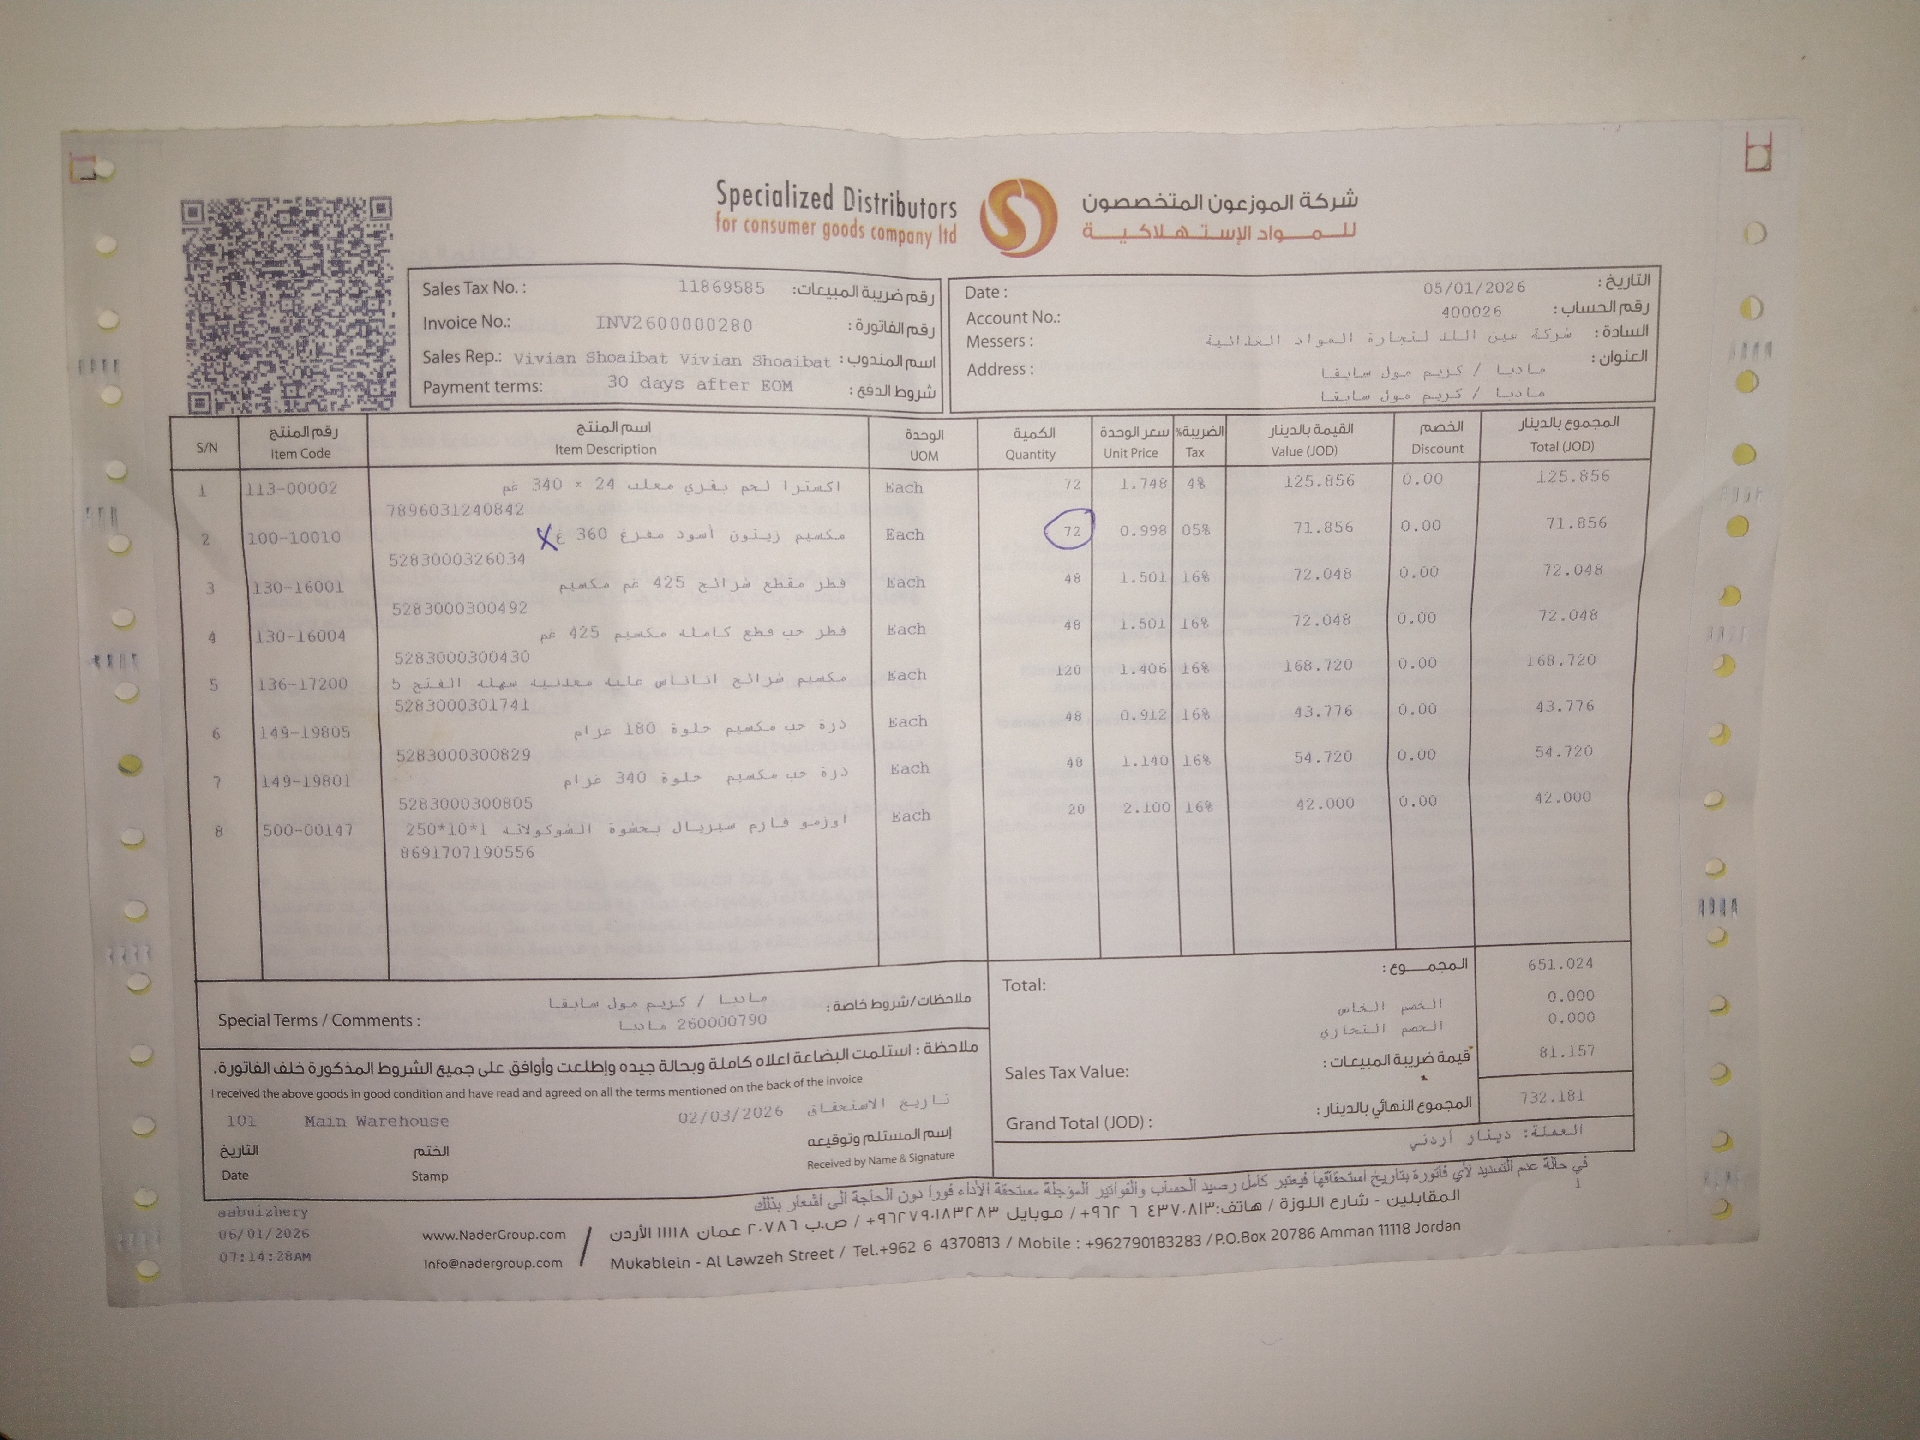 Specialized Distributors
for consumer goods company ltd
شركة الموزعون المتخصصون
للمواد الإستهلاكية
Sales Tax No.: 11869585 رقم ضريبة المبيعات:
Invoice No.: INV2600000280 رقم الفاتورة:
Sales Rep.: Vivian Shoaibat Vivian Shoaibat اسم المندوب:
Payment terms: 30 days after EOM شروط الدفع:
Date: 05/01/2026 التاريخ:
Account No.: 400026 رقم الحساب:
Messers: شركة عين اللد لتجارة المواد الغذائية السادة:
Address: مادبا / كريم مول سابقا العنوان:
مادبا / كريم مول سابقا
S/N رقم المنتج اسم المنتج الوحدة الكمية سعر الوحدة الضريبة% القيمة بالدينار الخصم المجموع بالدينار
Item Code Item Description UOM Quantity Unit Price Tax Value (JOD) Discount Total (JOD)
1 113-00002 اكسترا لحم بقري معلب 24 × 340 غم Each 72 1.748 4% 125.856 0.00 125.856
7896031240842
2 100-10010 مكسيم زيتون أسود مفرغ 360 غ X Each 72 0.998 05% 71.856 0.00 71.856
5283000326034
3 130-16001 فطر مقطع شرائح 425 غم مكسيم Each 48 1.501 16% 72.048 0.00 72.048
5283000300492
4 130-16004 فطر حب قطع كاملة مكسيم 425 غم Each 48 1.501 16% 72.048 0.00 72.048
5283000300430
5 136-17200 مكسيم شرائح اناناس علبة معدنية سهلة الفتح 5 Each 120 1.406 16% 168.720 0.00 168.720
5283000301741
6 149-19805 ذرة حب مكسيم حلوة 180 غرام Each 48 0.912 16% 43.776 0.00 43.776
5283000300829
7 149-19801 ذرة حب مكسيم حلوة 340 غرام Each 48 1.140 16% 54.720 0.00 54.720
5283000300805
8 500-00147 اوزمو فارم سيريال بحشوة الشوكولاته 1*10*250 Each 20 2.100 16% 42.000 0.00 42.000
8691707190556
Total: المجموع: 651.024
الخصم الخاص 0.000
الخصم التجاري 0.000
Sales Tax Value: قيمة ضريبة المبيعات: 81.157
Grand Total (JOD): المجموع النهائي بالدينار: 732.181
العملة: دينار أردني
Special Terms / Comments: مادبا / كريم مول سابقا ملاحظات/شروط خاصة:
260000790 مادبا
ملاحظة: استلمت البضاعة اعلاه كاملة وبحالة جيده وإطلعت وأوافق على جميع الشروط المذكورة خلف الفاتورة.
I received the above goods in good condition and have read and agreed on all the terms mentioned on the back of the invoice
101 Main Warehouse 02/03/2026 تاريخ الاستحقاق
التاريخ الختم إسم المستلم وتوقيعه
Date Stamp Received by Name & Signature
في حالة عدم التسديد لأي فاتورة بتاريخ استحقاقها فيعتبر كامل رصيد الحساب والفواتير المؤجلة مستحقة الأداء فورا دون الحاجة الى اشعار بذلك
1
aabuizhery
06/01/2026
07:14:28AM
www.NaderGroup.com
Info@nadergroup.com
المقابلين - شارع اللوزة / هاتف: ٤٣٧٠٨١٣ ٦ ٩٦٢+ / موبايل ٩٦٢٧٩٠١٨٣٢٨٣+ / ص.ب ٢٠٧٨٦ عمان ١١١١٨ الأردن
Mukablein - Al Lawzeh Street / Tel.+962 6 4370813 / Mobile : +962790183283 /P.O.Box 20786 Amman 11118 Jordan